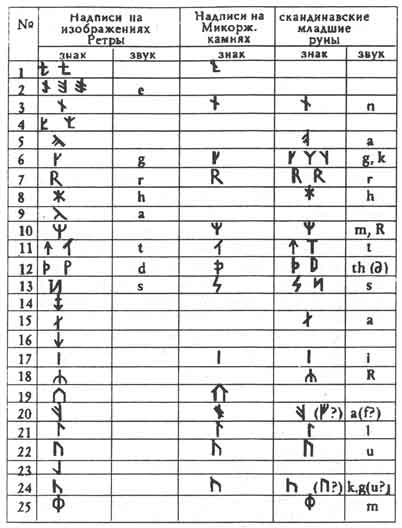 № Надписи на изображениях Ретры Надписи на Микорж. камнях скандинавские младшие руны
знак звук знак знак звук
1
2 e
3 ᚾ ᚾ ᚾ n
4
5 a
6 ᚴ g ᚴ g, k
7 ᚱ r ᚱ ᚱ ᚱ r
8 ᚼ h ᚼ h
9 a
10 ᛘ ᛘ ᛘ m, R
11 ᛏ t ᛏ t
12 ᚦ d ᚦ th (∂)
13 s ᛋ s
14
15 a
16
17 ᛁ ᛁ ᛁ i
18 ᛦ ᛦ R
19
20 a(f?)
21 ᛚ ᛚ ᛚ l
22 ᚢ ᚢ ᚢ u
23
24 k,g(u?)
25 Ф Ф m